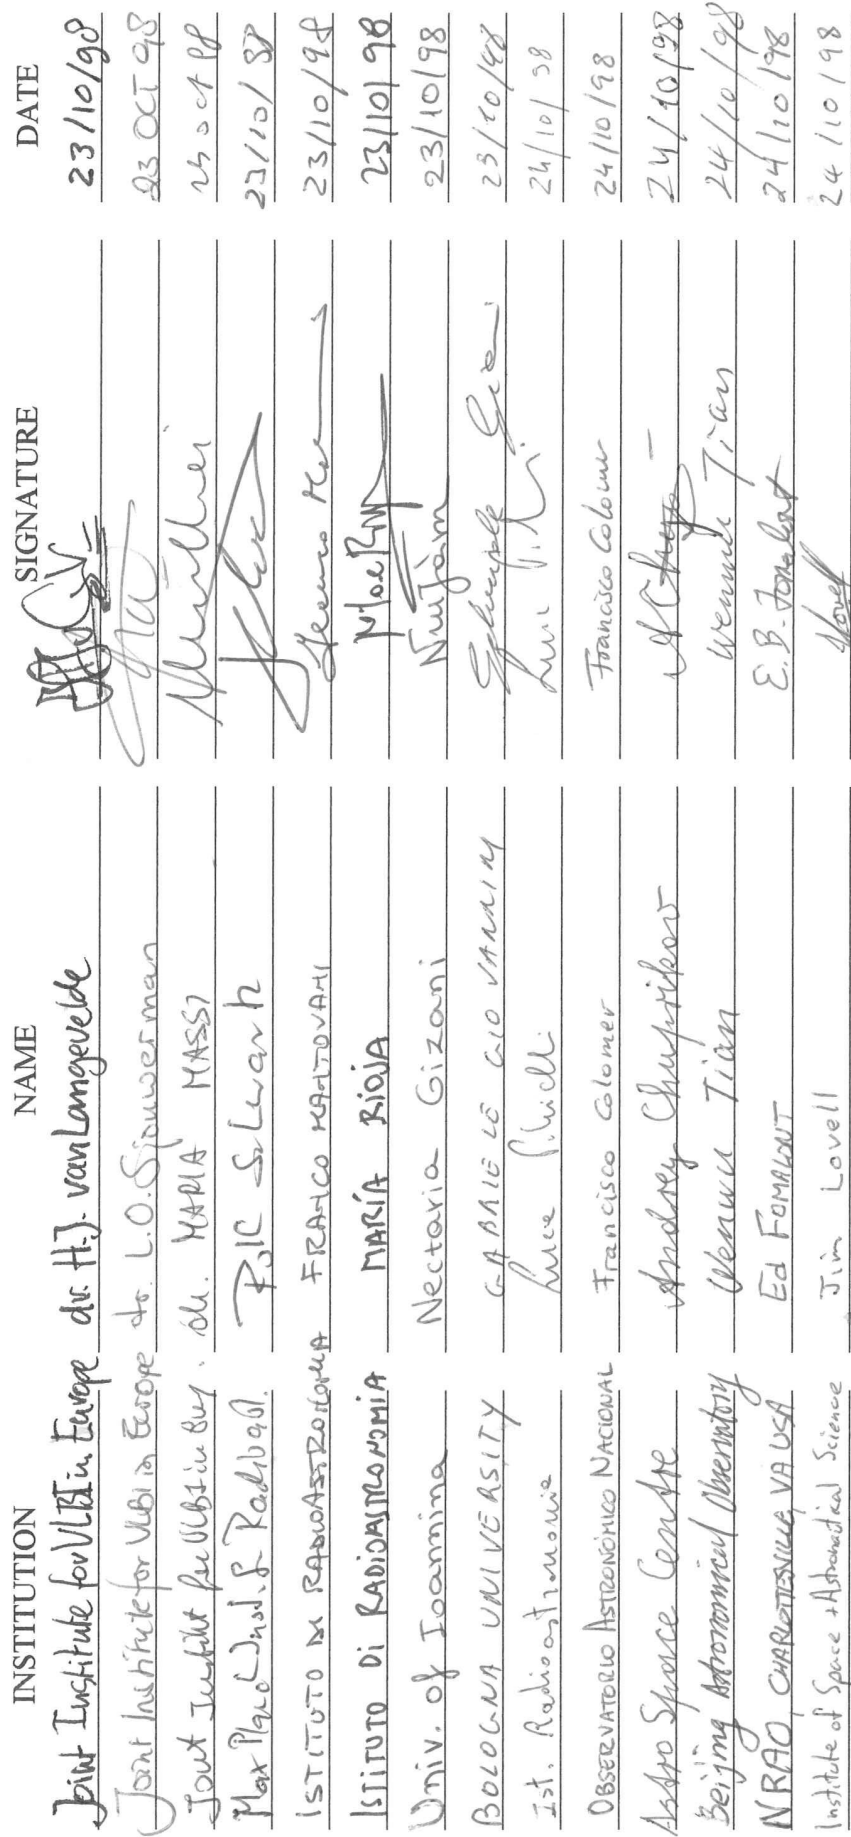 INSTITUTION NAME SIGNATURE DATE
Joint Institute for VLBI in Europe dr. H.J. van Langevelde 23/10/98
Joint Institute for VLBI in Europe dr. L.O. Sjouwerman 23 OCT 98
Joint Institut for VLBI in Eur. dr. MARIA MASSI 23 oct 98
Max Planck Inst. f. Radioast. 23/10/98
ISTITUTO DI RADIOASTRONOMIA FRANCO MANTOVANI 23/10/98
ISTITUTO DI RADIOASTRONOMIA MARÍA RIOJA 23/10/98
Univ. of Ioannina Nectaria Gizani 23/10/98
BOLOGNA UNIVERSITY GABRIELE GIOVANNINI 23/10/98
Ist. Radioastronomia Luca 24/10/98
OBSERVATORIO ASTRONÓMICO NACIONAL Francisco Colomer Francisco Colomer 24/10/98
Astro Space Centre Andrey Chuprikov 24/10/98
Beijing Astronomical Observatory Wenwu Tian Wenwu Tian 24/10/98
NRAO, CHARLOTTESVILLE, VA USA Ed FOMALONT E.B. Fomalont 24/10/98
Institute of Space + Astronautical Science Jim Lovell Lovell 24/10/98